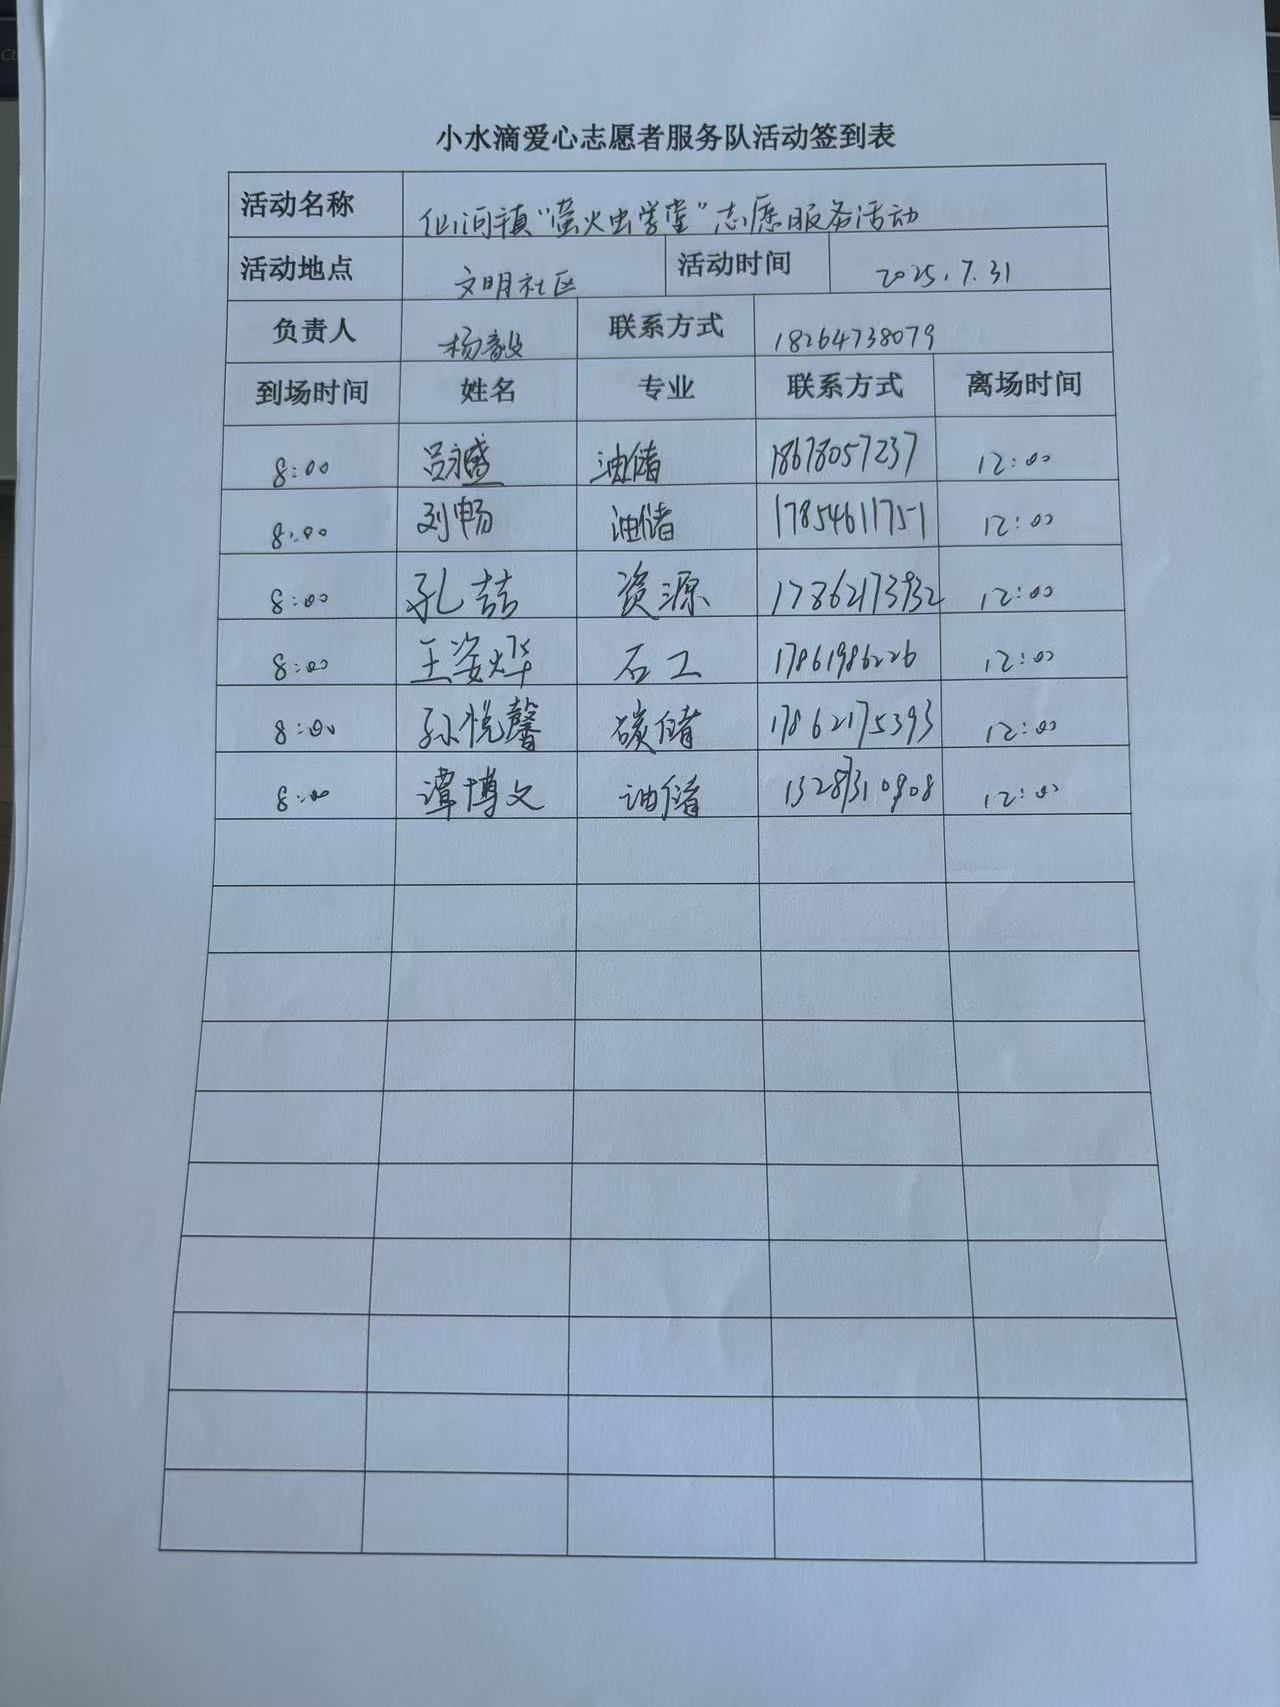 小水滴爱心志愿者服务队活动签到表
活动名称 仙河镇“萤火虫学堂”志愿服务活动
活动地点 文明社区 活动时间 2025.7.31
负责人 杨毅 联系方式 18264738079
到场时间 姓名 专业 联系方式 离场时间
8:00 吕永盛 油储 18678057237 12:00
8:00 刘畅 油储 17854611751 12:00
8:00 孔喆 资源 17862173932 12:00
8:00 王姿烨 石工 17861986226 12:00
8:00 孙悦馨 碳储 17862175393 12:00
8:00 谭博文 油储 13287310908 12:00